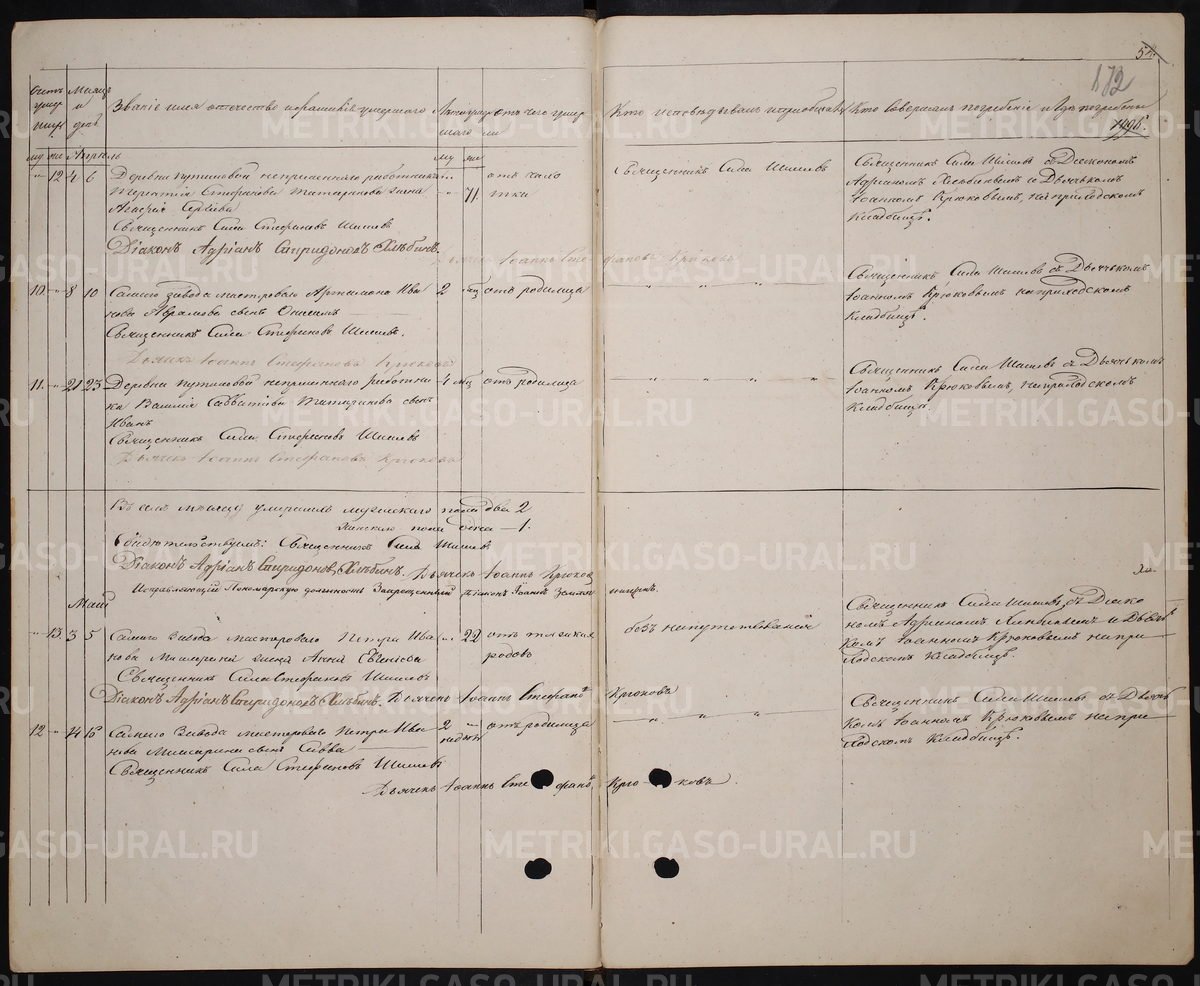 54.
172
1496.
Счетъ умер ших
Месяцъ и день
Званіе имя отечество и фамилія умершаго
Лета умер шаго
отъ чего умер ли
Кто исповѣдывалъ и пріобщалъ
Кто совершалъ погребеніе и гдѣ погребены
му же Апрѣль му же
" 12 4 6 Деревни Путиловой непременнаго работника
Стефанова Татаринова жена
71. отъ чахо тки
Священникъ Сила Шишевъ
Священникъ Сила Стефановъ Шишевъ
Діаконъ Адріанъ Спиридоновъ Хлѣбинъ.
Дьячекъ Іоаннъ Стефановъ Крюковъ
Священникъ Сила Шишевъ съ Діакономъ
Адріаномъ Хлебинымъ и Дьячькомъ
Іоанномъ Крюковымъ, на приходскомъ
Кладбищѣ.
10 " 8 10 Самаго завода мастероваго Артамона Ива
нова Аврамова сынъ Онисимъ
2 мец отъ родимца
" " " "
Священникъ Сила Стефановъ Шишевъ.
Дьячекъ Іоаннъ Стефановъ Крюковъ
Священникъ Сила Шишевъ съ Дьячькомъ
Іоанномъ Крюковымъ на приходскомъ
Кладбищѣ.
11. " 21 23 Деревни Путиловой непременнаго работни
ка Василія Савватіева Татаринова сынъ
Иванъ
4 мец отъ родимца
" " " "
Священникъ Сила Стефановъ Шишевъ
Дьячекъ Іоаннъ Стефановъ Крюковъ
Священникъ Сила Шишевъ съ Дьячькомъ
Іоанномъ Крюковымъ, на приходскомъ
Кладбищѣ.
Въ семъ месяцѣ умершихъ мужескаго пола два 2
женскаго пола одна — 1.
Свидетельствуемъ: Священникъ Сила Шишевъ
Діаконъ Адріанъ Спиридоновъ Хлѣбинъ. Дьячекъ Іоаннъ Крюковъ
Исправляющій Пономарскую должность Запрещенный Діаконъ Іоаннъ
Май
" 13. 3 5 Самаго завода мастероваго Петра Ива
нова жена Анна
22 отъ тяжких
родовъ
безъ напутствованія
Священникъ Сила Стефановъ Шишевъ
Діаконъ Адріанъ Спиридоновъ Хлѣбинъ. Дьячекъ Іоаннъ Стефановъ Крюковъ
Священникъ Сила Шишевъ съ Діако
номъ Адріаномъ Хлебинымъ и Дьячь
комъ Іоанномъ Крюковымъ на при
ходскомъ Кладбищѣ.
12 " 14 15 Самаго Завода мастероваго Петра Ива
нова сынъ Савва
2 недели " отъ родимца
" " "
Священникъ Сила Стефановъ Шишевъ
Дьячекъ Іоаннъ Стефановъ Крюковъ.
Священникъ Сила Шишевъ съ Дьячь
комъ Іоанномъ Крюковымъ на при
ходскомъ Кладбищѣ.
METRIKI.GASO-URAL.RU